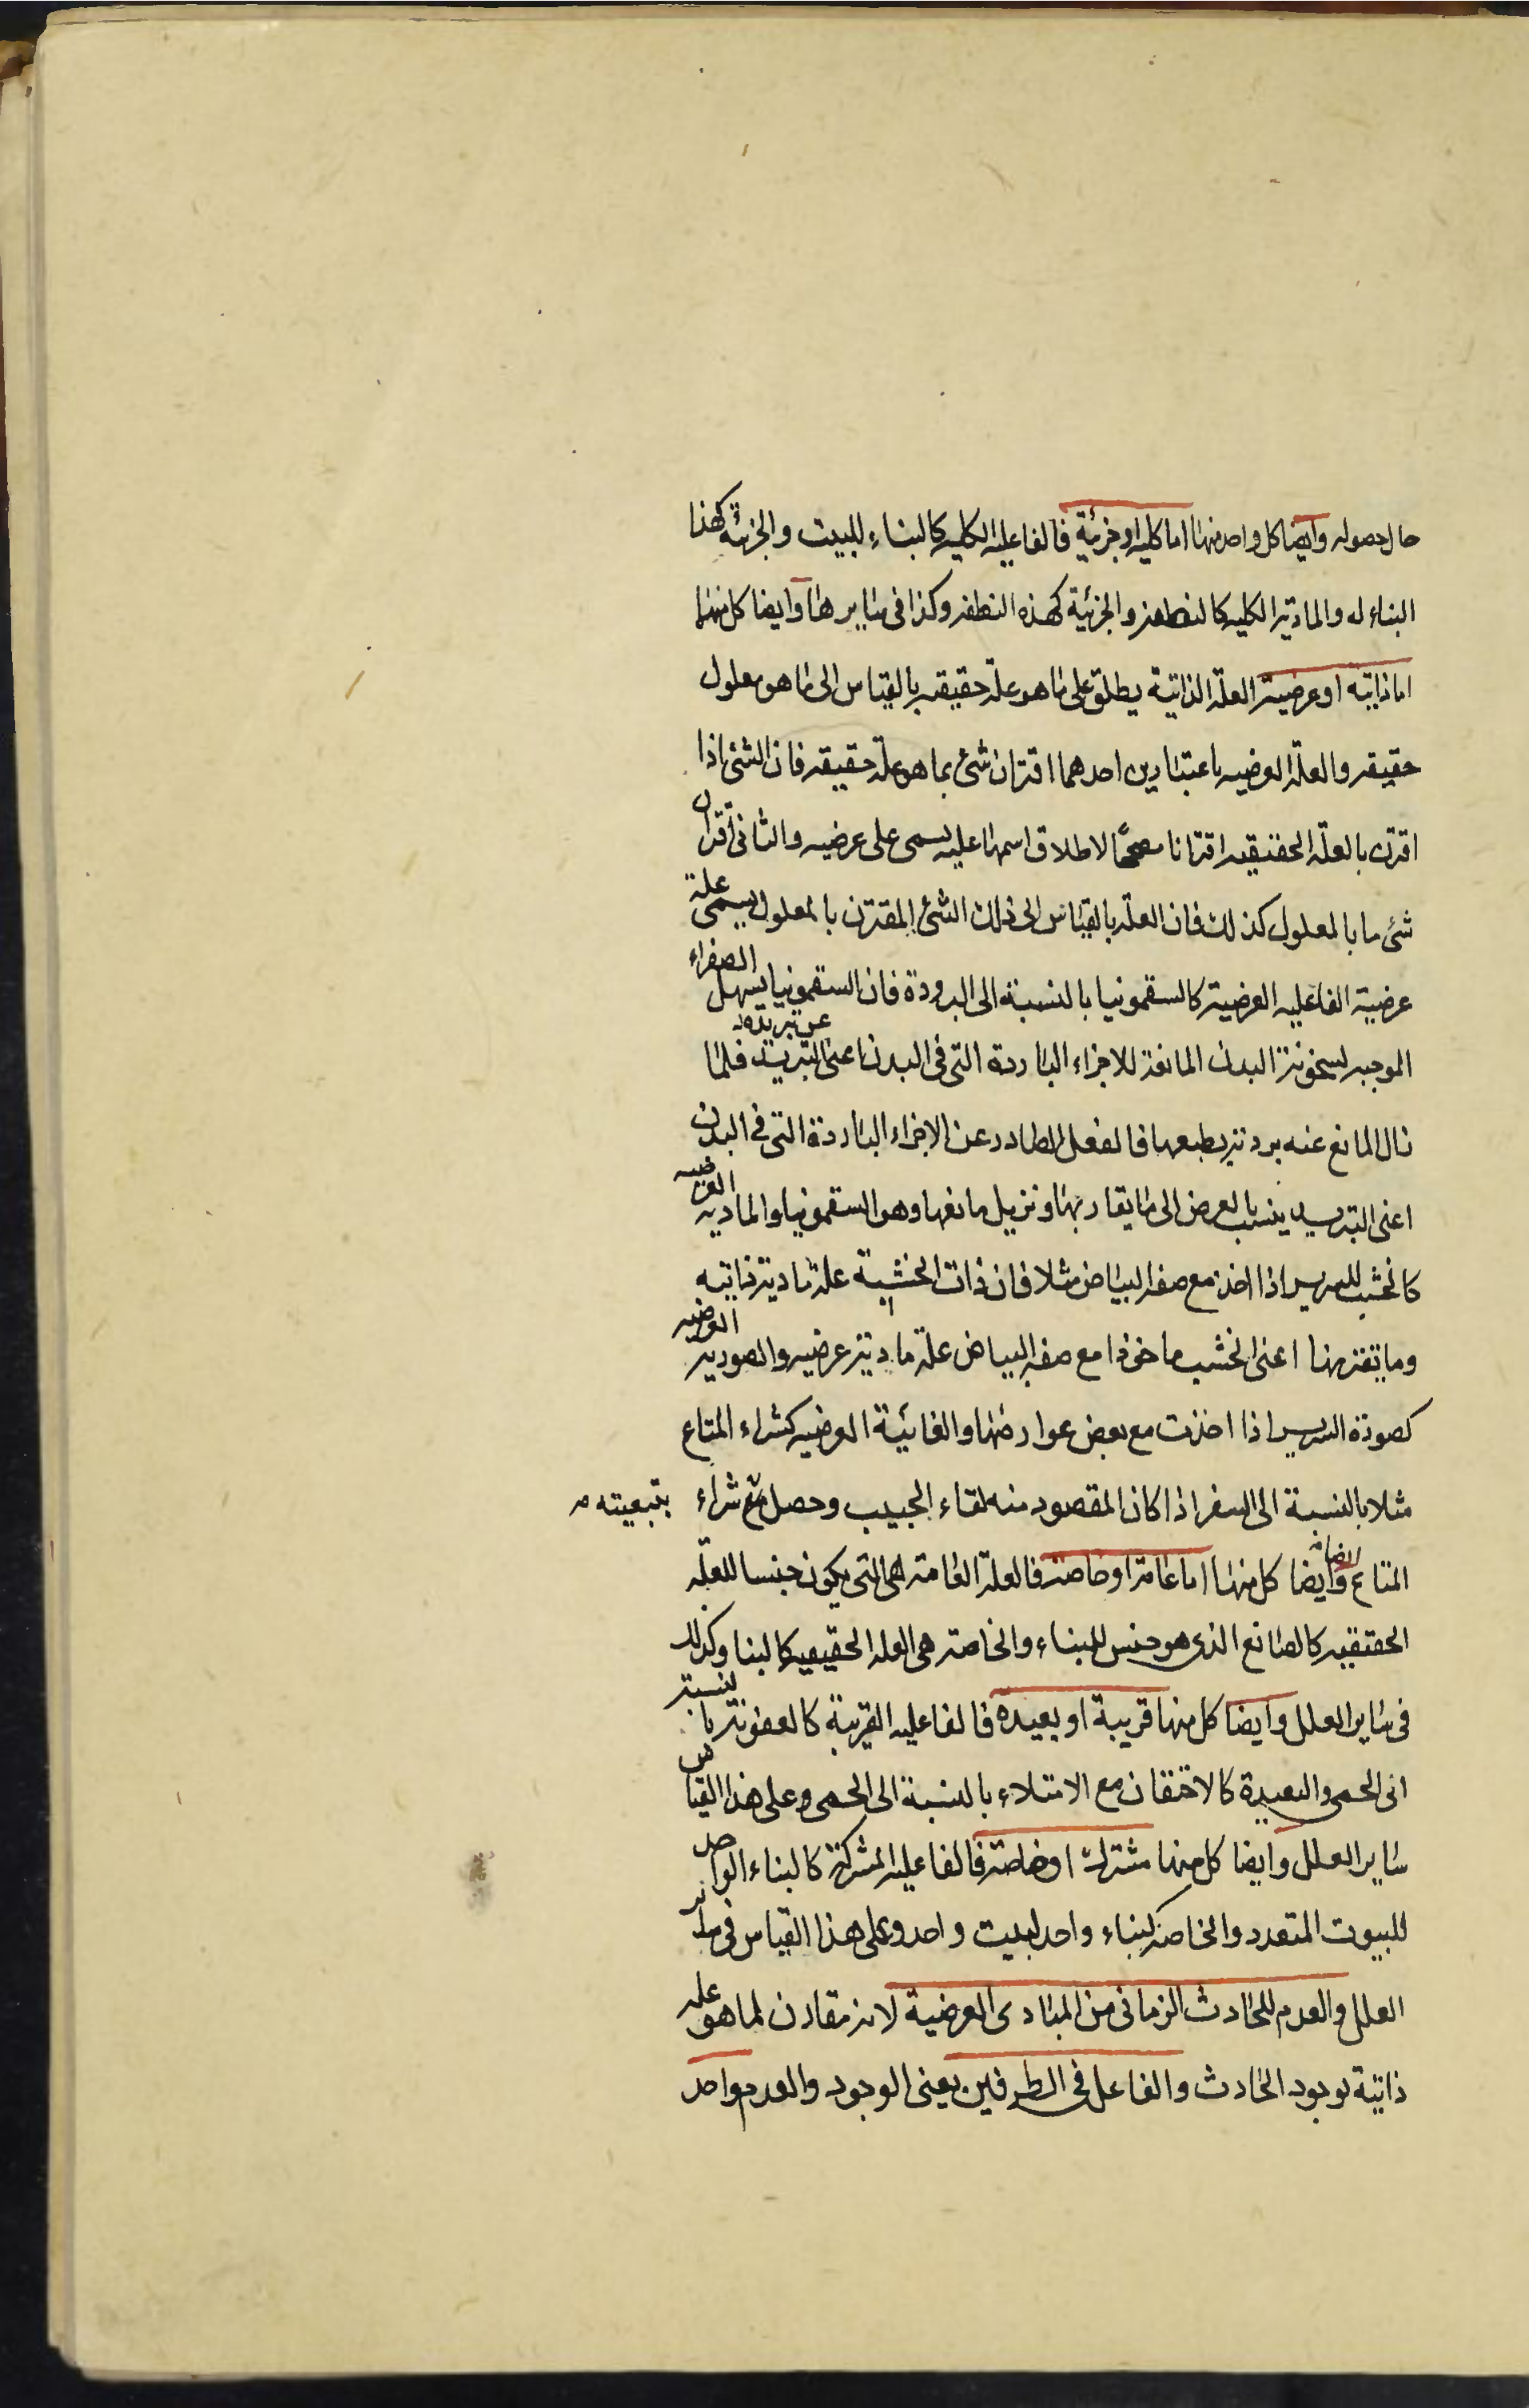 حال حصوله وأيضا كل واحد منها اما كلية او جزئية فالفاعلية الكلية كالبناء للبيت والجزئية كهذا
البناء له والمادية الكلية كالنطفة والجزئية كهذه النطفة وكذا فى سايرها وايضا كل منها
اما ذاتية او عرضية العلة الذاتية يطلق على ما هو علة حقيقة بالقياس الى ما هو معلول
حقيقة والعلة العرضية باعتبارين احدهما اقتران شئ بما هو علة حقيقة فان الشئ اذا
اقترن بالعلة الحقيقية اقترانا مصححا لاطلاق اسمها عليه يسمى على عرضيه والثانى اقتران
شئ ما بالمعلول كذلك فان العلة بالقياس الى ذلك الشئ المقترن بالمعلول يسمى علة
عرضية الفاعلية العرضية كالسقمونيا بالنسبة الى البرودة فان السقمونيا يسهل الصفراء
الموجبه لسخونة البدن المانعة للاجزاء الباردة التى فى البدن عن تبريده اعنى التبريد فلما
زال المانع عنه بردته بطبعها فالفعل الصادر عن الاجزاء الباردة التى فى البدن
اعنى التبريد ينسب بالعرض الى ما يقاربها ونزيل مانعها وهو السقمونيا والمادية العرضية
كالخشب للسرير اذا اخذ مع صفة البياض مثلا فان ذات الخشبية علة مادية ذاتية
وما تقترنها اعنى الخشب ماخوذا مع صفة البياض علة مادية عرضيه والصورية العرضيه
كصورة السرير اذا اخذت مع بعض عوارضها والغائية العرضيه كشراء المتاع
مثلا بالنسبة الى السفر اذا كان المقصود منه لقاء الحبيب وحصل شراء بتبعيته
المتاع ايضا وأيضا كل منها اما عامة او خاصة فالعلة العامة هى التى يكون جنسا للعلة
الحقيقيه كالصانع الذى هو جنس للبناء والخاصة هى العلة الحقيقية كالبنا وكذلك
فى ساير العلل وأيضا كل منها قريبة او بعيدة فالفاعلية القريبة كالعفونة بالنسبة
الى الحمى والبعيدة كالاحتقان مع الامتلاء بالنسبة الى الحمى وعلى هذا القياس
ساير العلل وأيضا كل منها مشترك او خاصة فالفاعلية المشتركة كالبناء الواحد
للبيوت المتعدد والخاصة كبناء واحد لبيت واحد وعلى هذا القياس فى ساير
العلل والعدم للحادث الزمانى من المبادى العرضية لانه مقارن لما هو علة
ذاتية لوجود الحادث والفاعل فى الطرفين يعنى الوجود والعدم واحد